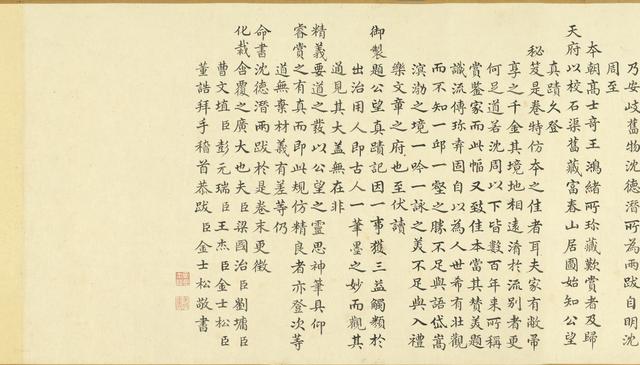 乃安岐舊物沈德潛所為兩跋自明沈
周至
本朝高士奇王鴻緒所珍藏歎賞者及歸
天府以校石渠舊藏富春山居圖始知公望
真蹟久登
秘笈是卷特仿本之佳者耳夫家有敝帚
享之千金其境地相遠淆於流別者更
何足道若沈周以下皆數百年來所稱
賞鑒家而此幅又致佳本當其贊美題
識流傳珎弆固自以為人世希有壯觀
而不知一邱一壑之勝不足與語岱嵩
溟渤之境一吟一詠之美不足與入禮
樂文章之府也至伏讀
御製題公望真蹟記因一事獲三益觸類於
出治用人即古人一筆墨之妙而觀其
通見其大蓋無在非
精義要道之發以公望之靈思神筆具仰
睿賞之有真而即此規仿精良者亦登次等
道無棄材義有差等仍
命書沈德潛兩跋於是卷末更徵
化裁含覆之廣大也夫臣梁國治臣劉墉臣
曹文埴臣彭元瑞臣王杰臣金士松臣
董誥拜手稽首恭跋 臣金士松敬書